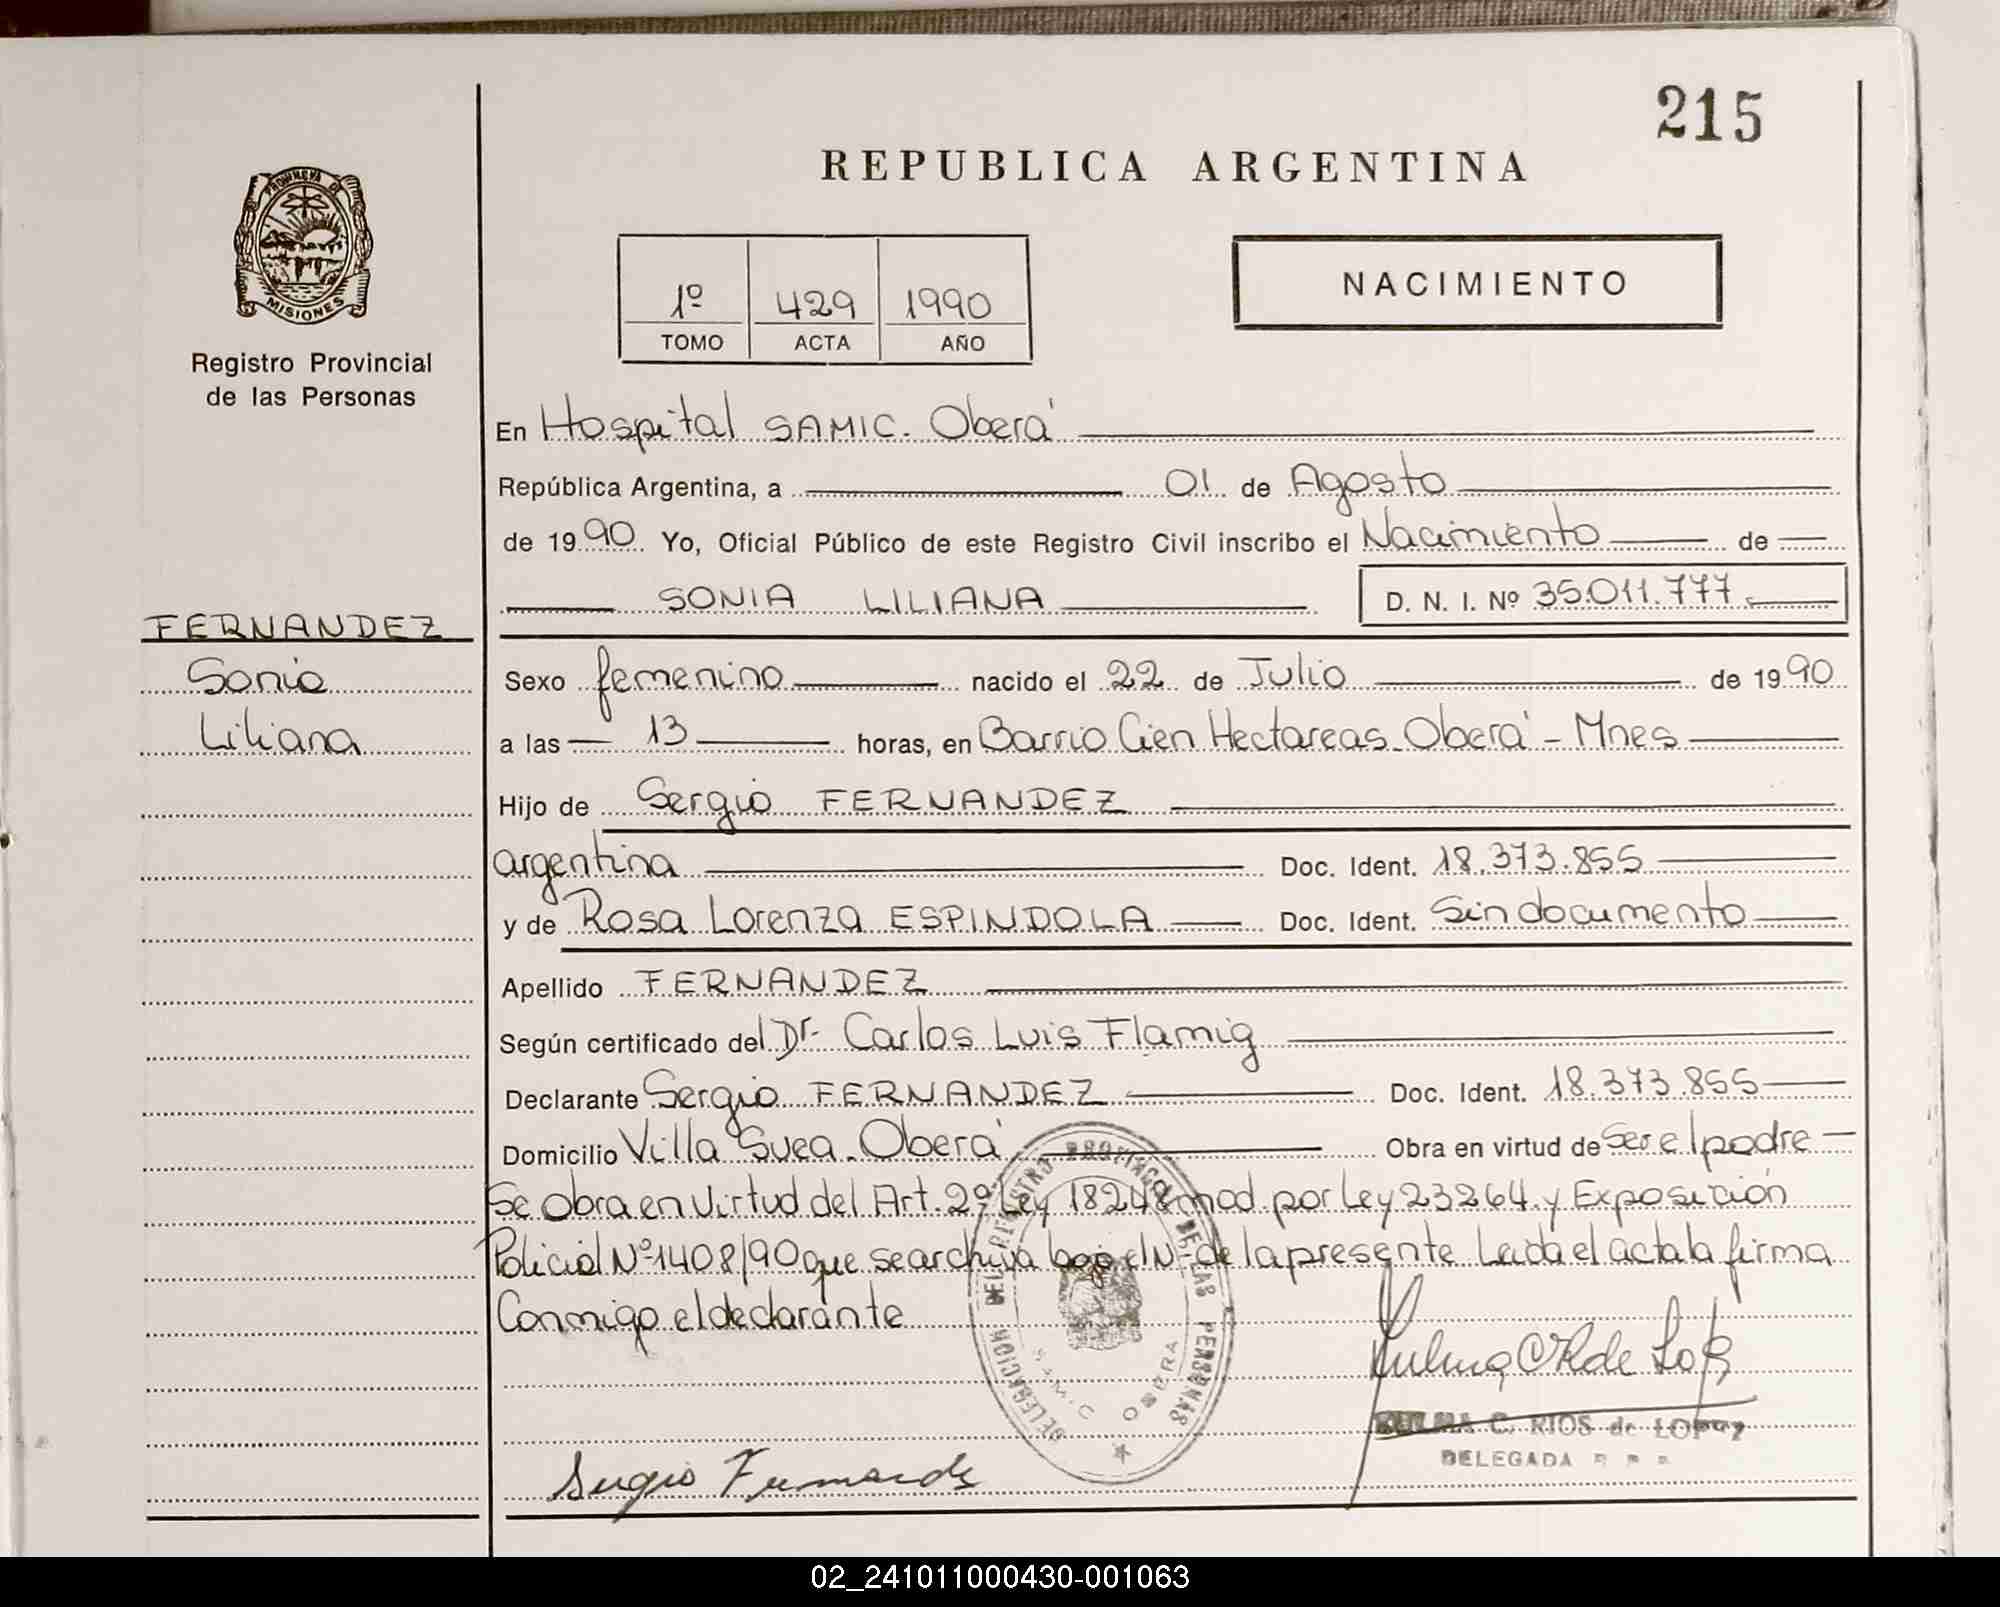 215
REPUBLICA ARGENTINA
PROVINCIA DE
MISIONES
Registro Provincial
de las Personas
1º 429 1990
TOMO ACTA AÑO
NACIMIENTO
En Hospital SAMIC. Oberá
República Argentina, a 01 de Agosto
de 1990 Yo, Oficial Público de este Registro Civil inscribo el Nacimiento de
SONIA LILIANA D. N. I. Nº 35.011.777
FERNANDEZ
Sonia
Liliana
Sexo femenino nacido el 22 de Julio de 1990
a las 13 horas, en Barrio Cien Hectareas. Oberá - Mnes
Hijo de Sergio FERNANDEZ
argentina Doc. Ident. 18.373.855
y de Rosa Lorenza ESPINDOLA Doc. Ident. Sin documento
Apellido FERNANDEZ
Según certificado del Dr. Carlos Luis Flamig
Declarante Sergio FERNANDEZ Doc. Ident. 18.373.855
Domicilio Villa Svea. Oberá Obra en virtud de Ser el padre
Se obra en virtud del Art. 2º Ley 18248 mod. por Ley 23264 y Exposición
Policial Nº 1408/90 que se archiva bajo el Nº de la presente Leida el acta la firma
Conmigo el declarante
DELEGACION DEL REGISTRO PROVINCIAL DE LAS PERSONAS
S.A.M.I.C OBERA
Sergio Fernandez
ZULMA C. RIOS de LOPEZ
DELEGADA
02_241011000430-001063